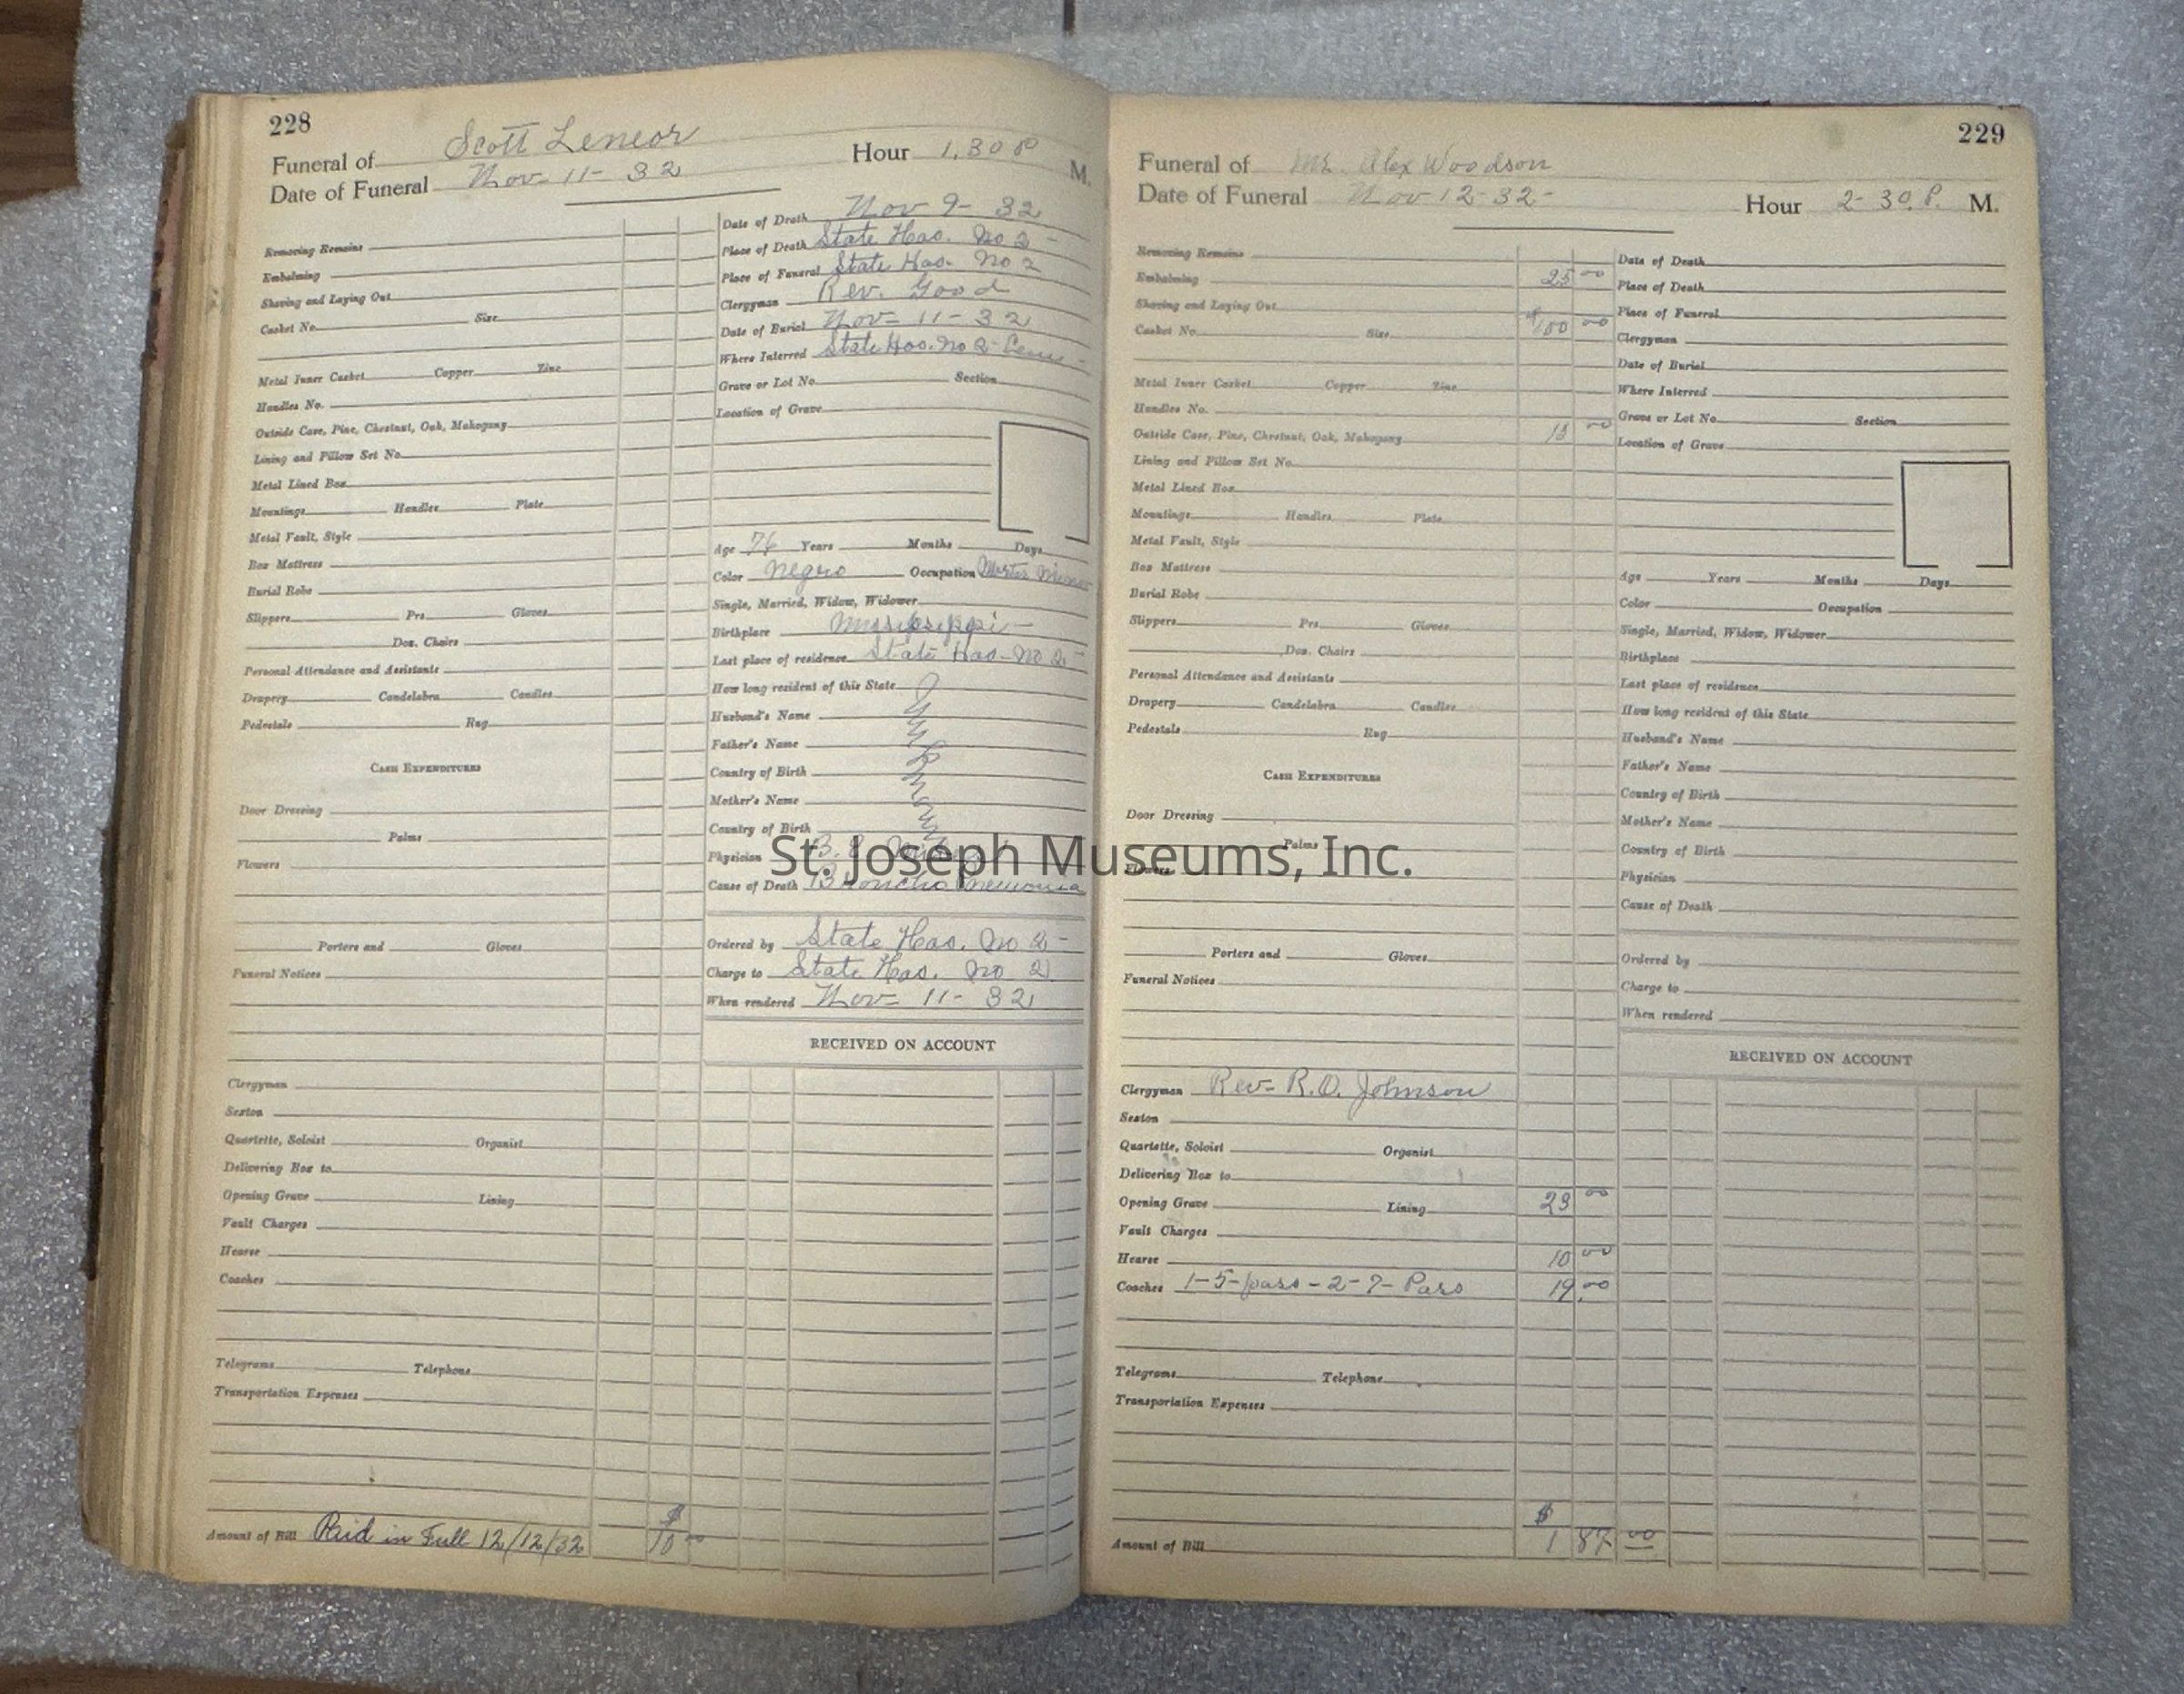 228
Funeral of Scott Leneor
Date of Funeral Nov- 11- 32 Hour 1.30 P M.
Removing Remains
Embalming
Shaving and Laying Out
Casket No. Size
Metal Inner Casket Copper Zinc
Handles No.
Outside Case, Pine, Chestnut, Oak, Mahogany
Lining and Pillow Set No.
Metal Lined Box
Mountings Handles Plate
Metal Vault, Style
Box Mattress
Burial Robe
Slippers Prs Gloves
Doz. Chairs
Personal Attendance and Assistants
Drapery Candelabra Candles
Pedestals Rug
CASH EXPENDITURES
Door Dressing
Palms
Flowers
Porters and Gloves
Funeral Notices
Clergyman
Sexton
Quartette, Soloist Organist
Delivering Box to
Opening Grave Lining
Vault Charges
Hearse
Coaches
Telegrams Telephone
Transportation Expenses
Amount of Bill Paid in Full 12/12/32 $ 10 00
Date of Death Nov 9- 32
Place of Death State Hos. No 2 -
Place of Funeral State Hos. No 2
Clergyman Rev. Good
Date of Burial Nov- 11- 32
Where Interred State Hos. No 2- Cem -
Grave or Lot No. Section
Location of Grave
Age 76 Years Months Days
Color Negro Occupation
Single, Married, Widow, Widower
Birthplace Mississippi -
Last place of residence State Hos- No 2 -
How long resident of this State
Husband's Name
Father's Name
Country of Birth
Mother's Name
Country of Birth
Physician B.
Cause of Death Broncho Pneumonia
Ordered by State Hos. No 2 -
Charge to State Hos. No 2
When rendered Nov- 11- 32
RECEIVED ON ACCOUNT
229
Funeral of Mr. Alex Woodson
Date of Funeral Nov 12-32- Hour 2-30.P. M.
Removing Remains
Embalming 25 00
Shaving and Laying Out
Casket No. Size $100 00
Metal Inner Casket Copper Zinc
Handles No.
Outside Case, Pine, Chestnut, Oak, Mahogany 10 00
Lining and Pillow Set No.
Metal Lined Box
Mountings Handles Plate
Metal Vault, Style
Box Mattress
Burial Robe
Slippers Prs Gloves
Doz. Chairs
Personal Attendance and Assistants
Drapery Candelabra Candles
Pedestals Rug
CASH EXPENDITURES
Door Dressing
Palms
Flowers
Porters and Gloves
Funeral Notices
Clergyman Rev- R.O. Johnson
Sexton
Quartette, Soloist Organist
Delivering Box to
Opening Grave Lining 23 00
Vault Charges
Hearse 10 00
Coaches 1-5-pass-2-7-Pass 19.00
Telegrams Telephone
Transportation Expenses
Amount of Bill $ 187 00
Date of Death
Place of Death
Place of Funeral
Clergyman
Date of Burial
Where Interred
Grave or Lot No. Section
Location of Grave
Age Years Months Days
Color Occupation
Single, Married, Widow, Widower
Birthplace
Last place of residence
How long resident of this State
Husband's Name
Father's Name
Country of Birth
Mother's Name
Country of Birth
Physician
Cause of Death
Ordered by
Charge to
When rendered
RECEIVED ON ACCOUNT
St. Joseph Museums, Inc.